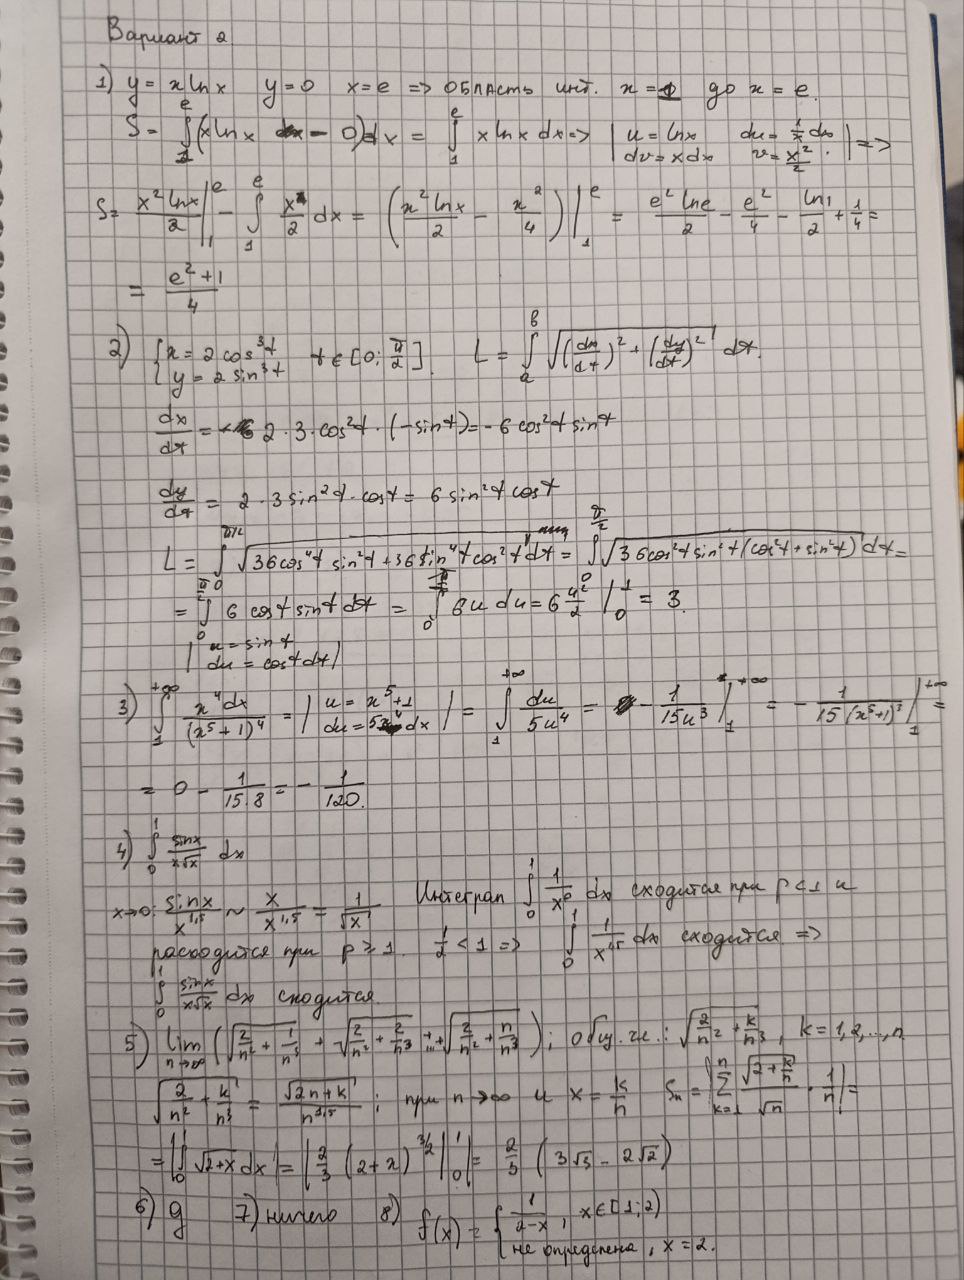 Вариант 2
1) y = x ln x   y = 0   x = e => область инт. x = 1 до x = e.
S = ∫₁ᵉ (x ln x - 0) dx = ∫₁ᵉ x ln x dx => | u = ln x   du = 1/x dx   dv = x dx   v = x²/2 | =>
S = x² ln x / 2 |₁ᵉ - ∫₁ᵉ x/2 dx = (x² ln x / 2 - x²/4) |₁ᵉ = e² ln e / 2 - e²/4 - ln 1 / 2 + 1/4 =
= (e² + 1)/4
2) { x = 2 cos³t   y = 2 sin³t   t ∈ [0; π/2].   L = ∫ₐᵇ √((dx/dt)² + (dy/dt)²) dt.
dx/dt = 2 · 3 · cos²t · (-sin t) = -6 cos²t sin t
dy/dt = 2 · 3 sin²t · cos t = 6 sin²t cos t
L = ∫₀^(π/2) √(36 cos⁴t sin²t + 36 sin⁴t cos²t) dt = ∫₀^(π/2) √(36 cos²t sin²t (cos²t + sin²t)) dt =
= ∫₀^(π/2) 6 cos t sin t dt = ∫₀ 6u du = 6 u²/2 |₀¹ = 3.
| u = sin t
du = cos t dt |
3) ∫₁^(+∞) x⁴dx/(x⁵+1)⁴ = | u = x⁵+1   du = 5x⁴ dx | = ∫₁^(+∞) du/5u⁴ = - 1/15u³ |₁^(+∞) = - 1/15(x⁵+1)³ |₁^(+∞) =
= 0 - 1/15·8 = - 1/120.
4) ∫₀¹ sinx/x√x dx
x→0: sinx/x^1,5 ~ x/x^1,5 = 1/√x   Интеграл ∫₀¹ 1/x^p dx сходится при p < 1 и
расходится при p ≥ 1.   1/2 < 1 => ∫₀¹ 1/x^0,5 dx сходится =>
∫₀¹ sinx/x√x dx сходится.
5) lim n→∞ (√(2/n² + 1/n³) + √(2/n² + 2/n³) + ... + √(2/n² + n/n³)); общ. чл.: √(2/n² + k/n³), k = 1,2,...,n
√(2/n² + k/n³) = √(2n+k)/n^1,5; при n→∞ и x = k/n   Sₙ = |∑ₖ₌₁ⁿ √(2+k/n)/√n · 1/n| =
= |∫₀¹ √(2+x) dx| = |2/3 (2+x)^(3/2) |₀¹| = 2/3 (3√3 - 2√2)
6) g   7) ничего   8) f(x) = { 1/(2-x), x ∈ [1; 2)
не определена, x = 2.